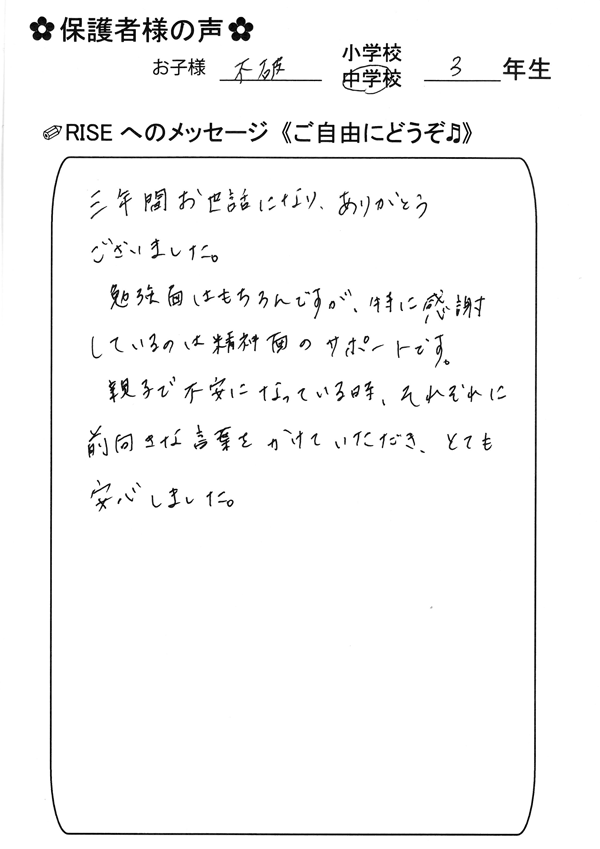 ✿保護者様の声✿
お子様 不破 小学校 中学校 3 年生
RISE へのメッセージ《ご自由にどうぞ♫》
三年間お世話になり、ありがとう
ございました。
勉強面はもちろんですが、特に感謝
しているのは精神面のサポートです。
親子で不安になっている時、それぞれに
前向きな言葉をかけていただき、とても
安心しました。